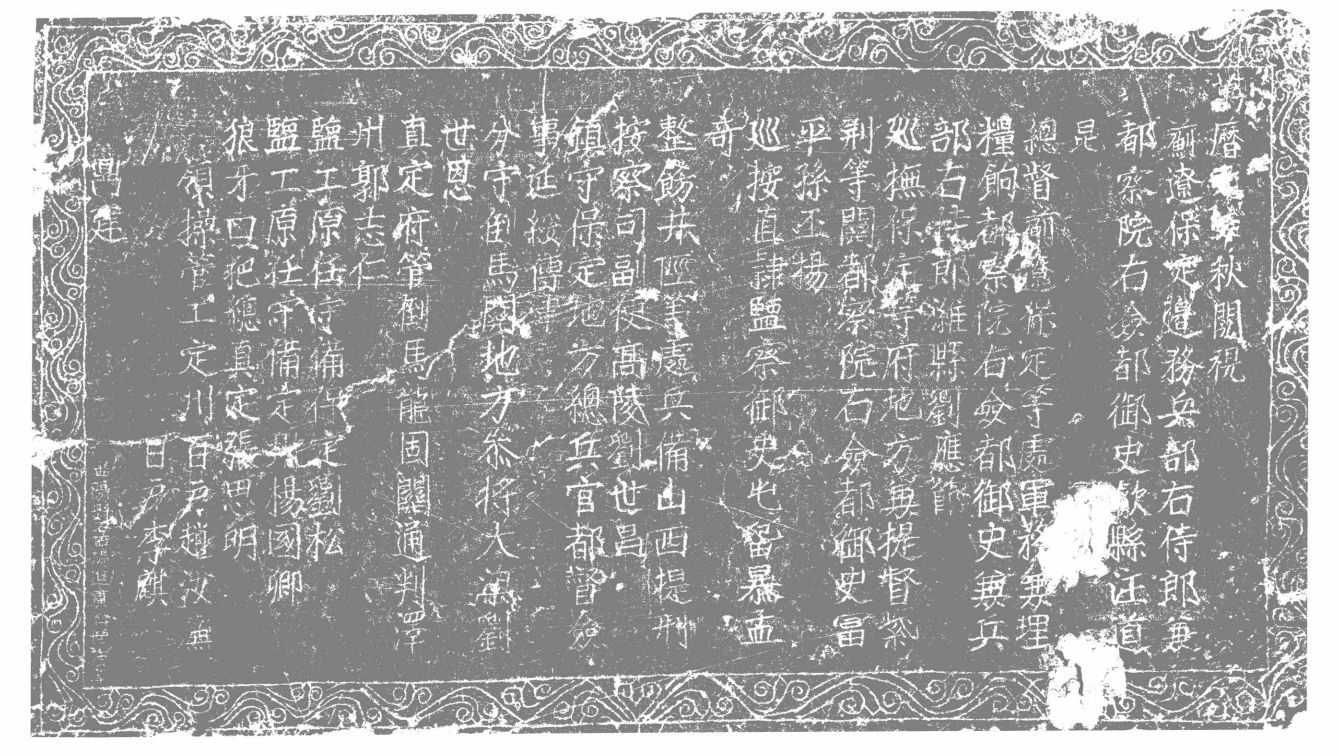 曆年秋閱視
薊遼保定邊務兵部右侍郎兼
都察院右僉都御史歙縣汪道
昆
總督薊遼保定等處軍務兼理
糧餉都察院右僉都御史兼兵
部右侍郎濰縣劉應節
巡撫保定等府地方兼提督紫
荆等關都察院右僉都御史富
平孫丕揚
巡按直隸監察御史屯留暴孟
奇
整飭井陘等處兵備山西提刑
按察司副使髙陵劉世昌
鎮守保定地方總兵官都督僉
事延綏傅津
分守倒馬關地方叅將大梁劉
世恩
真定府管倒馬龍固關通判
州郭志仁
鹽工原任守備定劉松
鹽工原任守備定州楊國卿
狼牙口把總真定張思明
領操管工定州百戶趙汝
百戶李麒
鼎建
曲陽